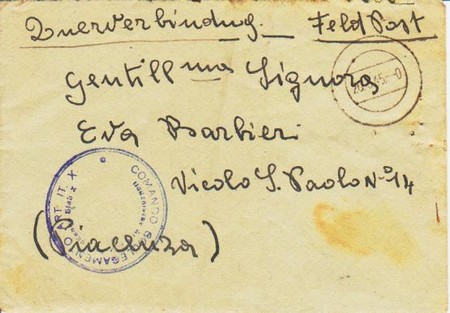 Querverbindung. FeldPost
Gentill ma Signora
Eva Barbieri
Vicolo S. Paolo No 14
(Piacenza)
COMANDO COLLEGAMENTO